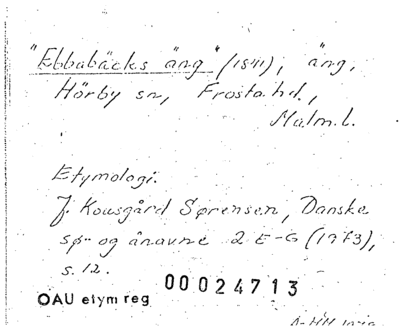 "Ebbabäcks äng" (1841), äng,
Hörby sn, Frosta hd.,
Malm. l.
Etymologi.
J. Kousgård Sørensen, Danske
sø- og ånavne 2 E-G (1973),
s. 12.
00024713
OAU etym reg